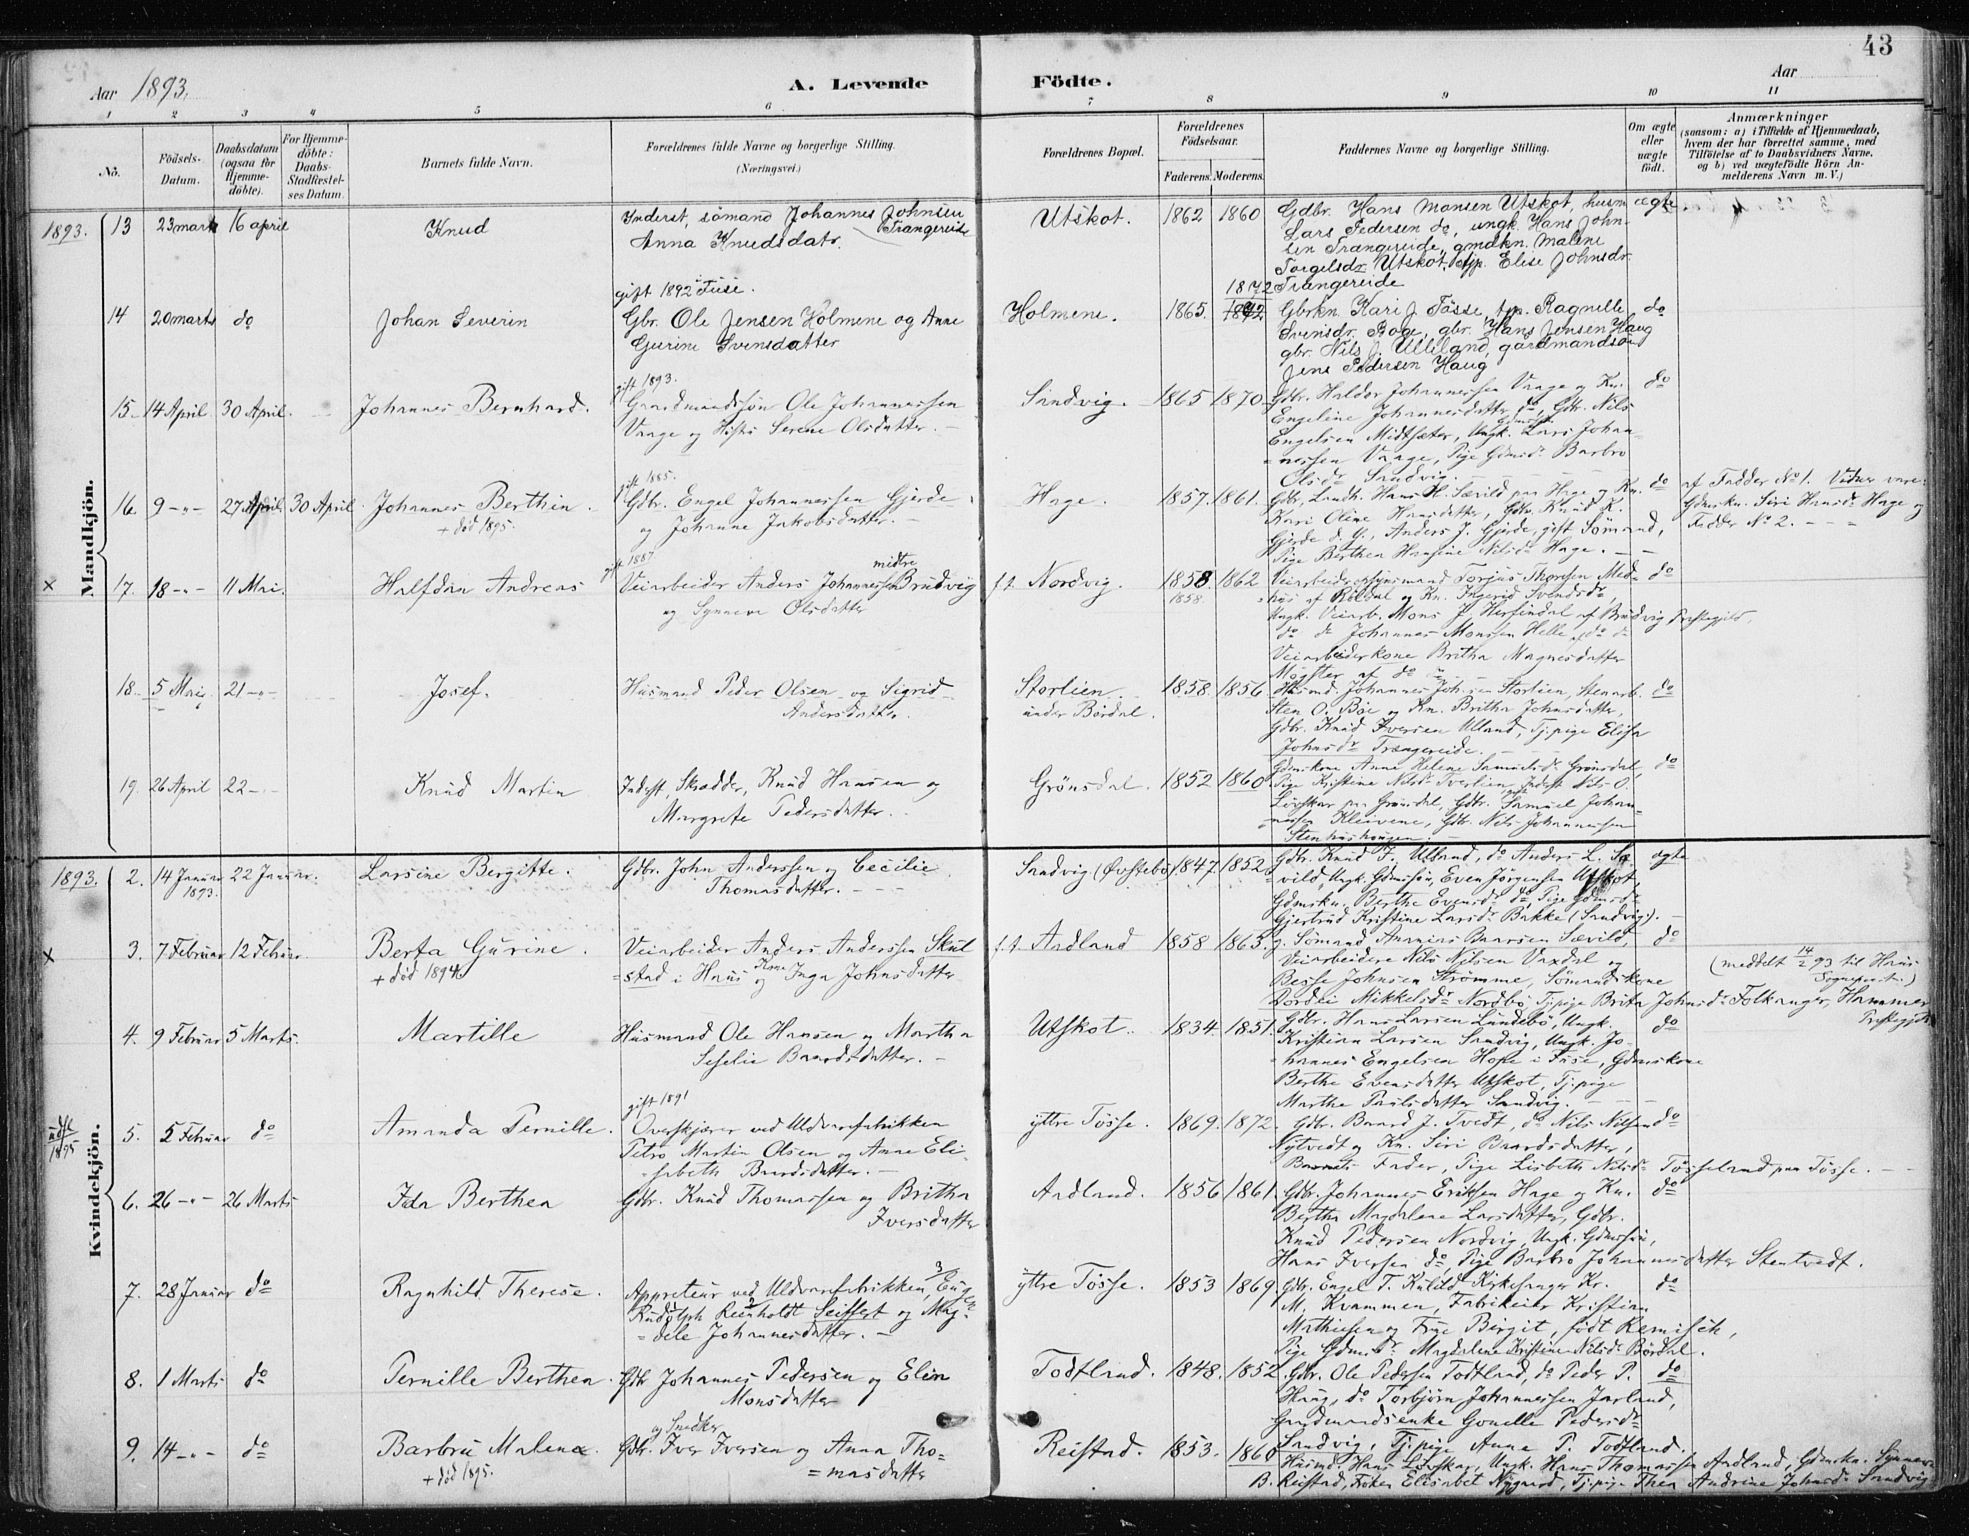 43
Aar 1893.
A. Levende Födte.
Aar
1 2 3 4 5 6 7 8 9 10 11
No.
Födsels-Datum.
Daabsdatum (ogsaa for Hjemme-döbte).
For Hjemme-döbte: Daabs-Stadfæstelses Datum.
Barnets fulde Navn.
Forældrenes fulde Navne og borgerlige Stilling.
(Næringsvei.)
Forældrenes Bopæl.
Forældrenes Födselsaar.
Faderens. Moderens.
Faddernes Navne og borgerlige Stilling.
Om ægte eller uægte født.
Anmærkninger
(saasom: a) i Tilfælde af Hjemmedaab, hvem der har forrettet samme, med Tilföielse af to Daabsvidners Navne, og b) ved uægtefödte Börn Anmelderens Navn m. V.)
Mandkjön.
1893. 13 23 marts 16 april Knud
Inderst, sömand Johannes Johnsen Trangereide
Anna Knudsdatr.
Utskot. 1862 1860
Gdbr. Hans Monsen Utskot, husm ægte
Lars Pedersen do, ungk. Hans John-
sen Trangereide, gmdkn. Malene
Torgelsdr Utskot, Elise Johnsdr
Trangereide
14 20 marts do Johan Severin
gift 1892 i Fuse.
Gbr. Ole Jensen Holmene og Anne
Gurine Svensdatter
Holmene. 1865. 1872
Gbrkn. Kari J Tösse, tjp. Ragnille do
Svensdr. Boge, gbr. Hans Jensen Haug
gbr. Nils J. Ulleland, gardmandssön
Jens Pedersen Haug
15 14 April 30 April. Johannes Bernhard.
gift 1893.
Gaardmandssøn Ole Johannessen
Vaage og Serene Olsdatter.
Sandvig. 1865 1870
Gdbr. Haldor Johannessen Vaage og Kn. do
Engeline Johannesdatter do, Gdbr. Nils
Engelsen Midtsæter, Ungk. Lars Johan-
=nessen Vaage, Pige Gdmsdr Barbro
Olsdr Sandvig.
16. 9 -"- 27 April. 30 April Johannes Berthin.
+ død 1895.
gift 1885.
Gdbr. Engel Johannessen Gjerde
og Johanne Jakobsdatter.
Hage. 1857. 1861.
Gdbr, Landh. Hans H. Sævild paa Hage og Kn. do
Kari Oline Hansdatter, Gdbr. Knud K.
Gjerde d. y., Anders J. Gjerde, gift Sömand,
Pige Berthea Hansine Nilsdr Hage.
af Fadder No 1. Vidner vare:
Gdmskn. Siri Hansdr Hage og
Fadder No 2.
x 17. 18 -"- 11 Mai. Halfdan Andreas
gift 1887
Veiarbeider Anders Johannessen midtre Brudvig
og Synneve Olsdatter
f. t. Nordvig. 1858. 1862
1858.
Veiarbeideropsynsmand Torjus Thorsen Med- do
hus af Röldal og Kn. Ingerid Svendsdr,
Ungk. Veiarb. Mons J. Herfindal af Brudvig Præstegjeld,
do do Johannes Monsen Helle af do do
Veiarbeiderkone Britha Magnesdatter
Møgster af do
18 5 Mai 21 -"- Josef.
Husmand Peder Olsen og Sigrid
Andersdatter.
Storlien
under Bördal.
1858. 1856
Husmd. Johannes Storlien, Stenarb. do
Sten O. Böe og Kn. Britha Johnsdatter,
Gdbr. Knud Iversen Ulland, Tj.pige Elisa
Johnsdr Trængereide.
19. 26 April 22 Knud Martin
Inderst, Skrædder, Knud Hansen og
Margrete Pedersdatter.
Grönsdal. 1852 1860
Gdmskone Anne Helene Samuelsdr Grönsdal, do
Pige Kristine Nilsdr Tverlien, Inderst Nils O.
Lövskar paa Grönsdal, Gdbr. Samuel Johan-
=nessen Kleivene, Gdbr. Nils Johannessen
Stenhushaugen.
Kvindekjön.
1893. 2. 14 Januar 1893. 22 Januar. Larsine Bergitte.
Gdbr. John Anderssen og Cecilie
Thomasdatter.
Sandvig (Øvstebö) 1847. 1852
Gdbr. Knud F. Ulland, do Anders L. Sæ- ægte
=vild, Ungk. Gdmsön, Even Jörgensen Utskot,
Gdmskn. Berthe Evensdr do, Pige Gdmsdr
Gjertrud Kristine Larsdr Bakke (Sandvig).
x 3. 7 Februar 12 Februar. Berta Gurine.
+ død 1894
Veiarbeider Anders Anderssen Skul
=stad i Haus og Kone Inga Johnsdatter
f. t. Ardland 1858 1863.
g. Sömand Ananias Baarsen Sævild, do
Veiarbeidere Nils Nilsen Vaxdal og
Besse Johnsen Strömme, Sömandskone
Dordei Mikkelsdr Nordbö, Tj.pige Brita Johnsdr Folkanger, Hammer Præstegjeld
(meddelt 14/2 93 til Haus
Sognepræst.)
4. 9 Februar 5 Marts. Martille
Husmand Ole Hansen og Martha
Seselie Baardsdatter.
Utskot. 1834. 1851.
Gdbr. Hans Larsen Lundebö, Ungk. do
Kristian Larsen Sandvig, Ungk. Jo-
=hannes Engelsen Hope i Fuse, Gdmskone
Berthe Evensdatter Utskot, Tj.pige
Marthe Paulsdatter Sandvig.
udfl. 1895
5. 5 Februar do Amanda Pernille.
gift 1891
Overskjærer ved Uldvarefabrikken
Petro Martin Olsen og Anne Eli-
=sabeth Baardsdatter.
yttre Tösse. 1869. 1872.
Gdbr. Baard J. Tvedt, do Nils Nilsen do
Nytvedt og Kn. Siri Baardsdatter,
Barnets Fader, Pige Lisbeth Nilsdr Tösseland paa Tösse.
6. 26 -"- 26 Marts Ida Berthea
Gdbr. Knud Thomassen og Britha
Iversdatter
Ardland. 1856 1861.
Gdbr. Johannes Eriksen Hage og Kn. do
Bertha Magdalene Larsdatter, Gdbr.
Knud Pedersen Nordvig, Ungk. Gdmssön,
Hans Iversen do, Pige Barbro Johannesdatter Stentvedt.
7. 28 Januar do Ragnhild Therese.
Appreteur ved Uldvarefabrikken, Eugen
Rudolph Reinholdt Seiffert og Mag-
=dele Johannesdatter.
yttre Tösse. 1853 1869
Gdbr. Engel T. Kulild, Kirkesanger Kr. do
M. Kvammen, Fabrikeier Kristian
Mathiesen og Frue Birgit, født Kemisch,
Pige Gdmsdr Magdalena Kristine Nilsdr Bördal.
8. 1 Marts do Pernille Berthea.
Gdbr Johannes Pedersen og Elin
Monsdatter
Todtland. 1848. 1852
Gdbr. Ole Pedersen Todtland, do Peder P. do
Haug, do Torbjørn Johannessen Jarland,
Gaardmandsenke Gonille Pedersdr
Sandvig, Tj.pige Anne P. Todtland.
9. 14 -"- do Barbru Malene.
+ død 1895.
og Snedker
Gdbr. Iver Iversen og Anna Tho=
=masdatter
Reistad. 1853. 1860
Husmd. Hans Lövskar, Ungk. Hans Thomassen Ardland, Gdmskn. Synneve
B. Reistad, Frøken Elisabet Nygaard, Tj.pige Thea Andrine Johnsdr Sandvig